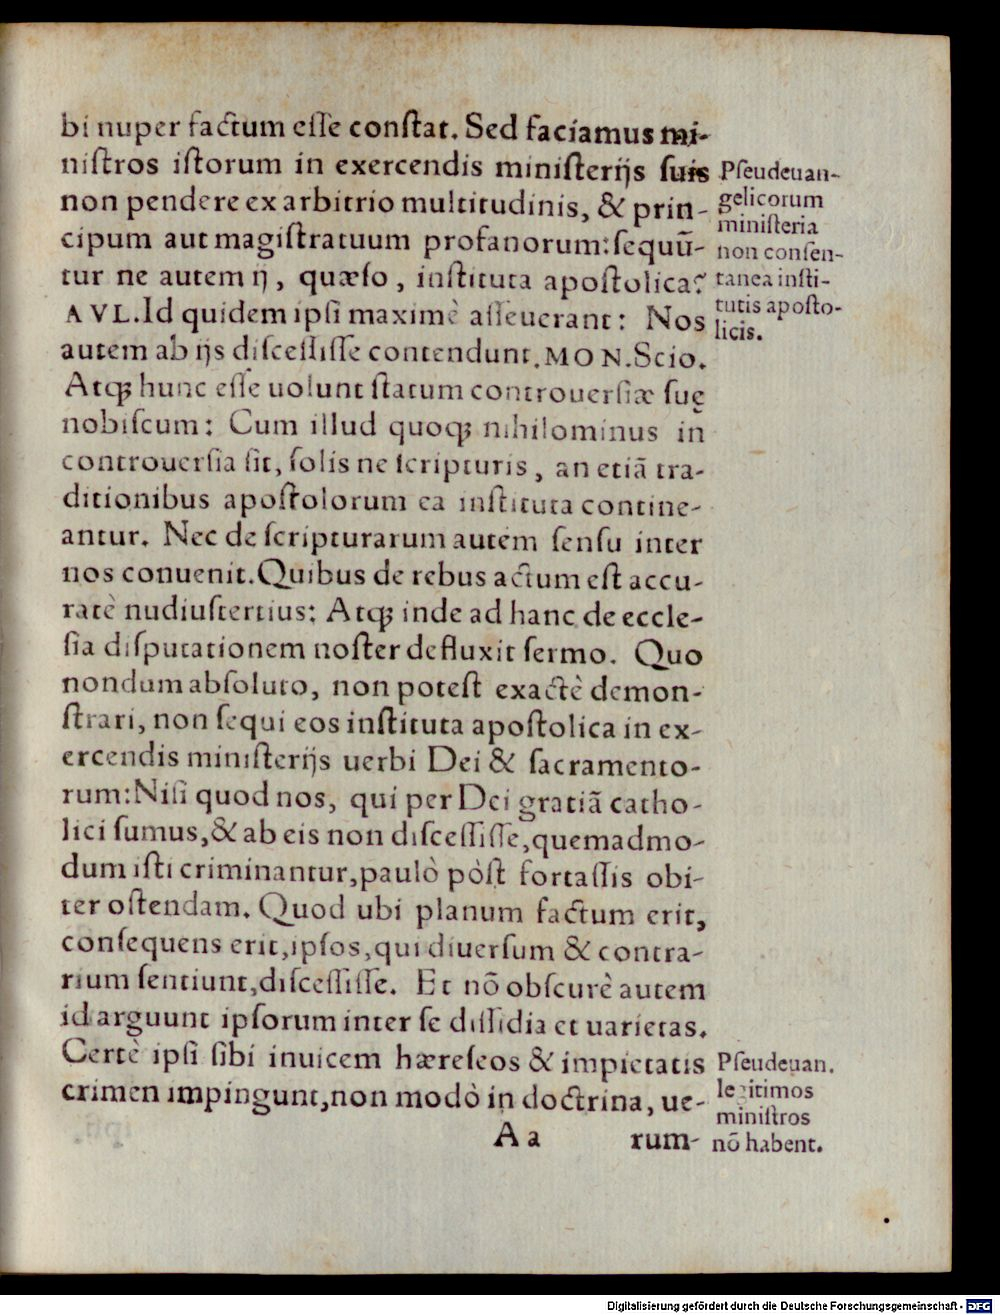 bi nuper factum eſſe conſtat. Sed faciamus mi-
niſtros iſtorum in exercendis miniſterijs ſuis
non pendere ex arbitrio multitudinis, & prin-
cipum aut magiſtratuum profanorum: ſequũ-
tur ne autem ij, quæſo, inſtituta apoſtolica?
AVL. Id quidem ipſi maximè aſſeuerant: Nos
autem ab ijs diſceſſiſſe contendunt. MON. Scio.
Atqꝫ hunc eſſe uolunt ſtatum controuerſiæ ſuę
nobiſcum: Cum illud quoqꝫ nihilominus in
controuerſia ſit, ſolis ne ſcripturis, an etiã tra-
ditionibus apoſtolorum ea inſtituta contine-
antur. Nec de ſcripturarum autem ſenſu inter
nos conuenit. Quibus de rebus actum eſt accu-
ratè nudiuſtertius: Atqꝫ inde ad hanc de eccle-
ſia diſputationem noſter defluxit ſermo. Quo
nondum abſoluto, non poteſt exactè demon-
ſtrari, non ſequi eos inſtituta apoſtolica in ex-
ercendis miniſterijs uerbi Dei & ſacramento-
rum: Niſi quod nos, qui per Dei gratiã catho-
lici ſumus, & ab eis non diſceſſiſſe, quemadmo-
dum iſti criminantur, paulò pòſt fortaſſis obi-
ter oſtendam. Quod ubi planum factum erit,
conſequens erit, ipſos, qui diuerſum & contra-
rium ſentiunt, diſceſſiſſe. Et nõ obſcurè autem
id arguunt ipſorum inter ſe diſſidia et uarietas.
Certè ipſi ſibi inuicem hæreſeos & impietatis
crimen impingunt, non modò in doctrina, ue-
Aa rum-
Pſeudeuan-
gelicorum
miniſteria
non conſen-
tanea inſti-
tutis apoſto-
licis.
Pſeudeuan.
legitimos
miniſtros
nõ habent.
Digitalisierung gefördert durch die Deutsche Forschungsgemeinschaft - DFG